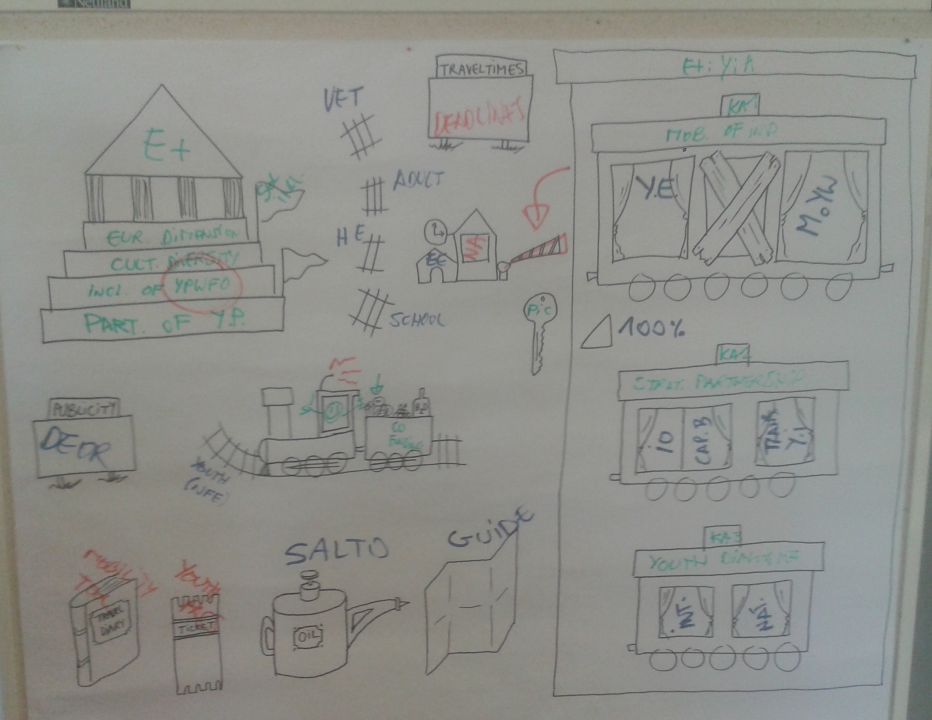 Neuland
E+
EUR. DIMENSION
CULT. DIVERSITY
INCL. OF YPWFO
PART. OF Y.P.
VET
ADULT
HE
SCHOOL
TRAVELTIMES
DEADLINES
EC
PiC
E+: YiA
KA1
MOB. OF IND.
Y.E
MOYW
100%
KA2
STRAT. PARTNERSHIP
CAP.B
KA3
YOUTH
INT.
NAT.
PUBLICITY
DEOR
YOUTH
CO
MOBILITY
TOOL
TRAVEL
DIARY
YOUTH
PASS
TICKET
SALTO
OIL
GUIDE